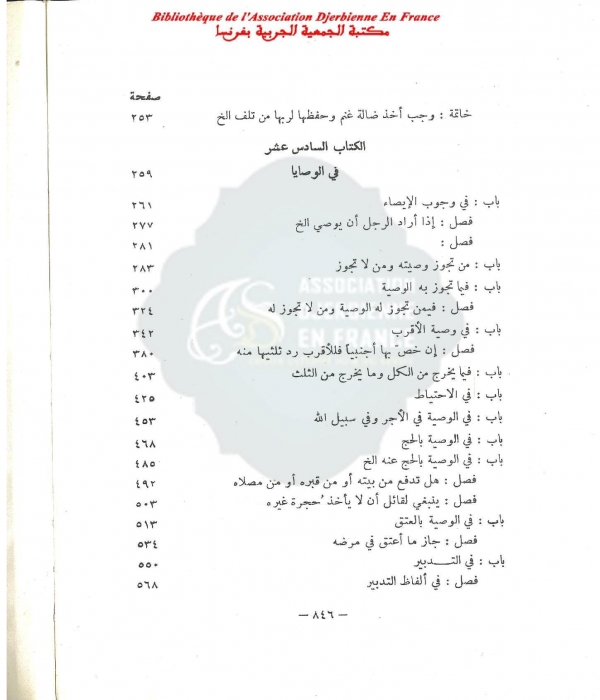 Bibliothèque de l'Association Djerbienne En France
مكتبة الجمعية الجربية بفرنسا
صفحة
خاتمة : وجب أخذ ضالة غنم وحفظها لربها من تلف الخ ٢٥٣
الكتاب السادس عشر
في الوصايا ٢٥٩
باب : في وجوب الإيصاء ٢٦١
فصل : إذا أراد الرجل أن يوصي الخ ٢٧٧
فصل : ٢٨١
باب : من تجوز وصيته ومن لا تجوز ٢٨٣
باب : فيما تجوز به الوصية ٣٠٠
فصل : فيمن تجوز له الوصية ومن لا تجوز له ٣٢٤
باب : في وصية الأقرب ٣٤٢
فصل : إن خص بها أجنبياً فللأقرب رد ثلثيها منه ٣٨٠
باب : فيما يخرج من الكل وما يخرج من الثلث ٤٠٣
باب : في الاحتياط ٤٢٥
باب : في الوصية في الأجر وفي سبيل الله ٤٥٣
باب : في الوصية بالحج ٤٦٨
باب : في الوصية بالحج عنه الخ ٤٨٥
فصل : هل تدفع من بيته أو من قبره أو من مصلاه ٤٩٢
فصل : ينبغي لقائل أن لا يأخذ حجرة غيره ٥٠٣
باب : في الوصية بالعتق ٥١٣
فصل : جاز ما أعتق في مرضه ٥٣٤
باب : في التـــدبير ٥٥٠
فصل : في ألفاظ التدبير ٥٦٨
ASSOCIATION
DJERBIENNE
EN FRANCE
— ٨٤٦ —